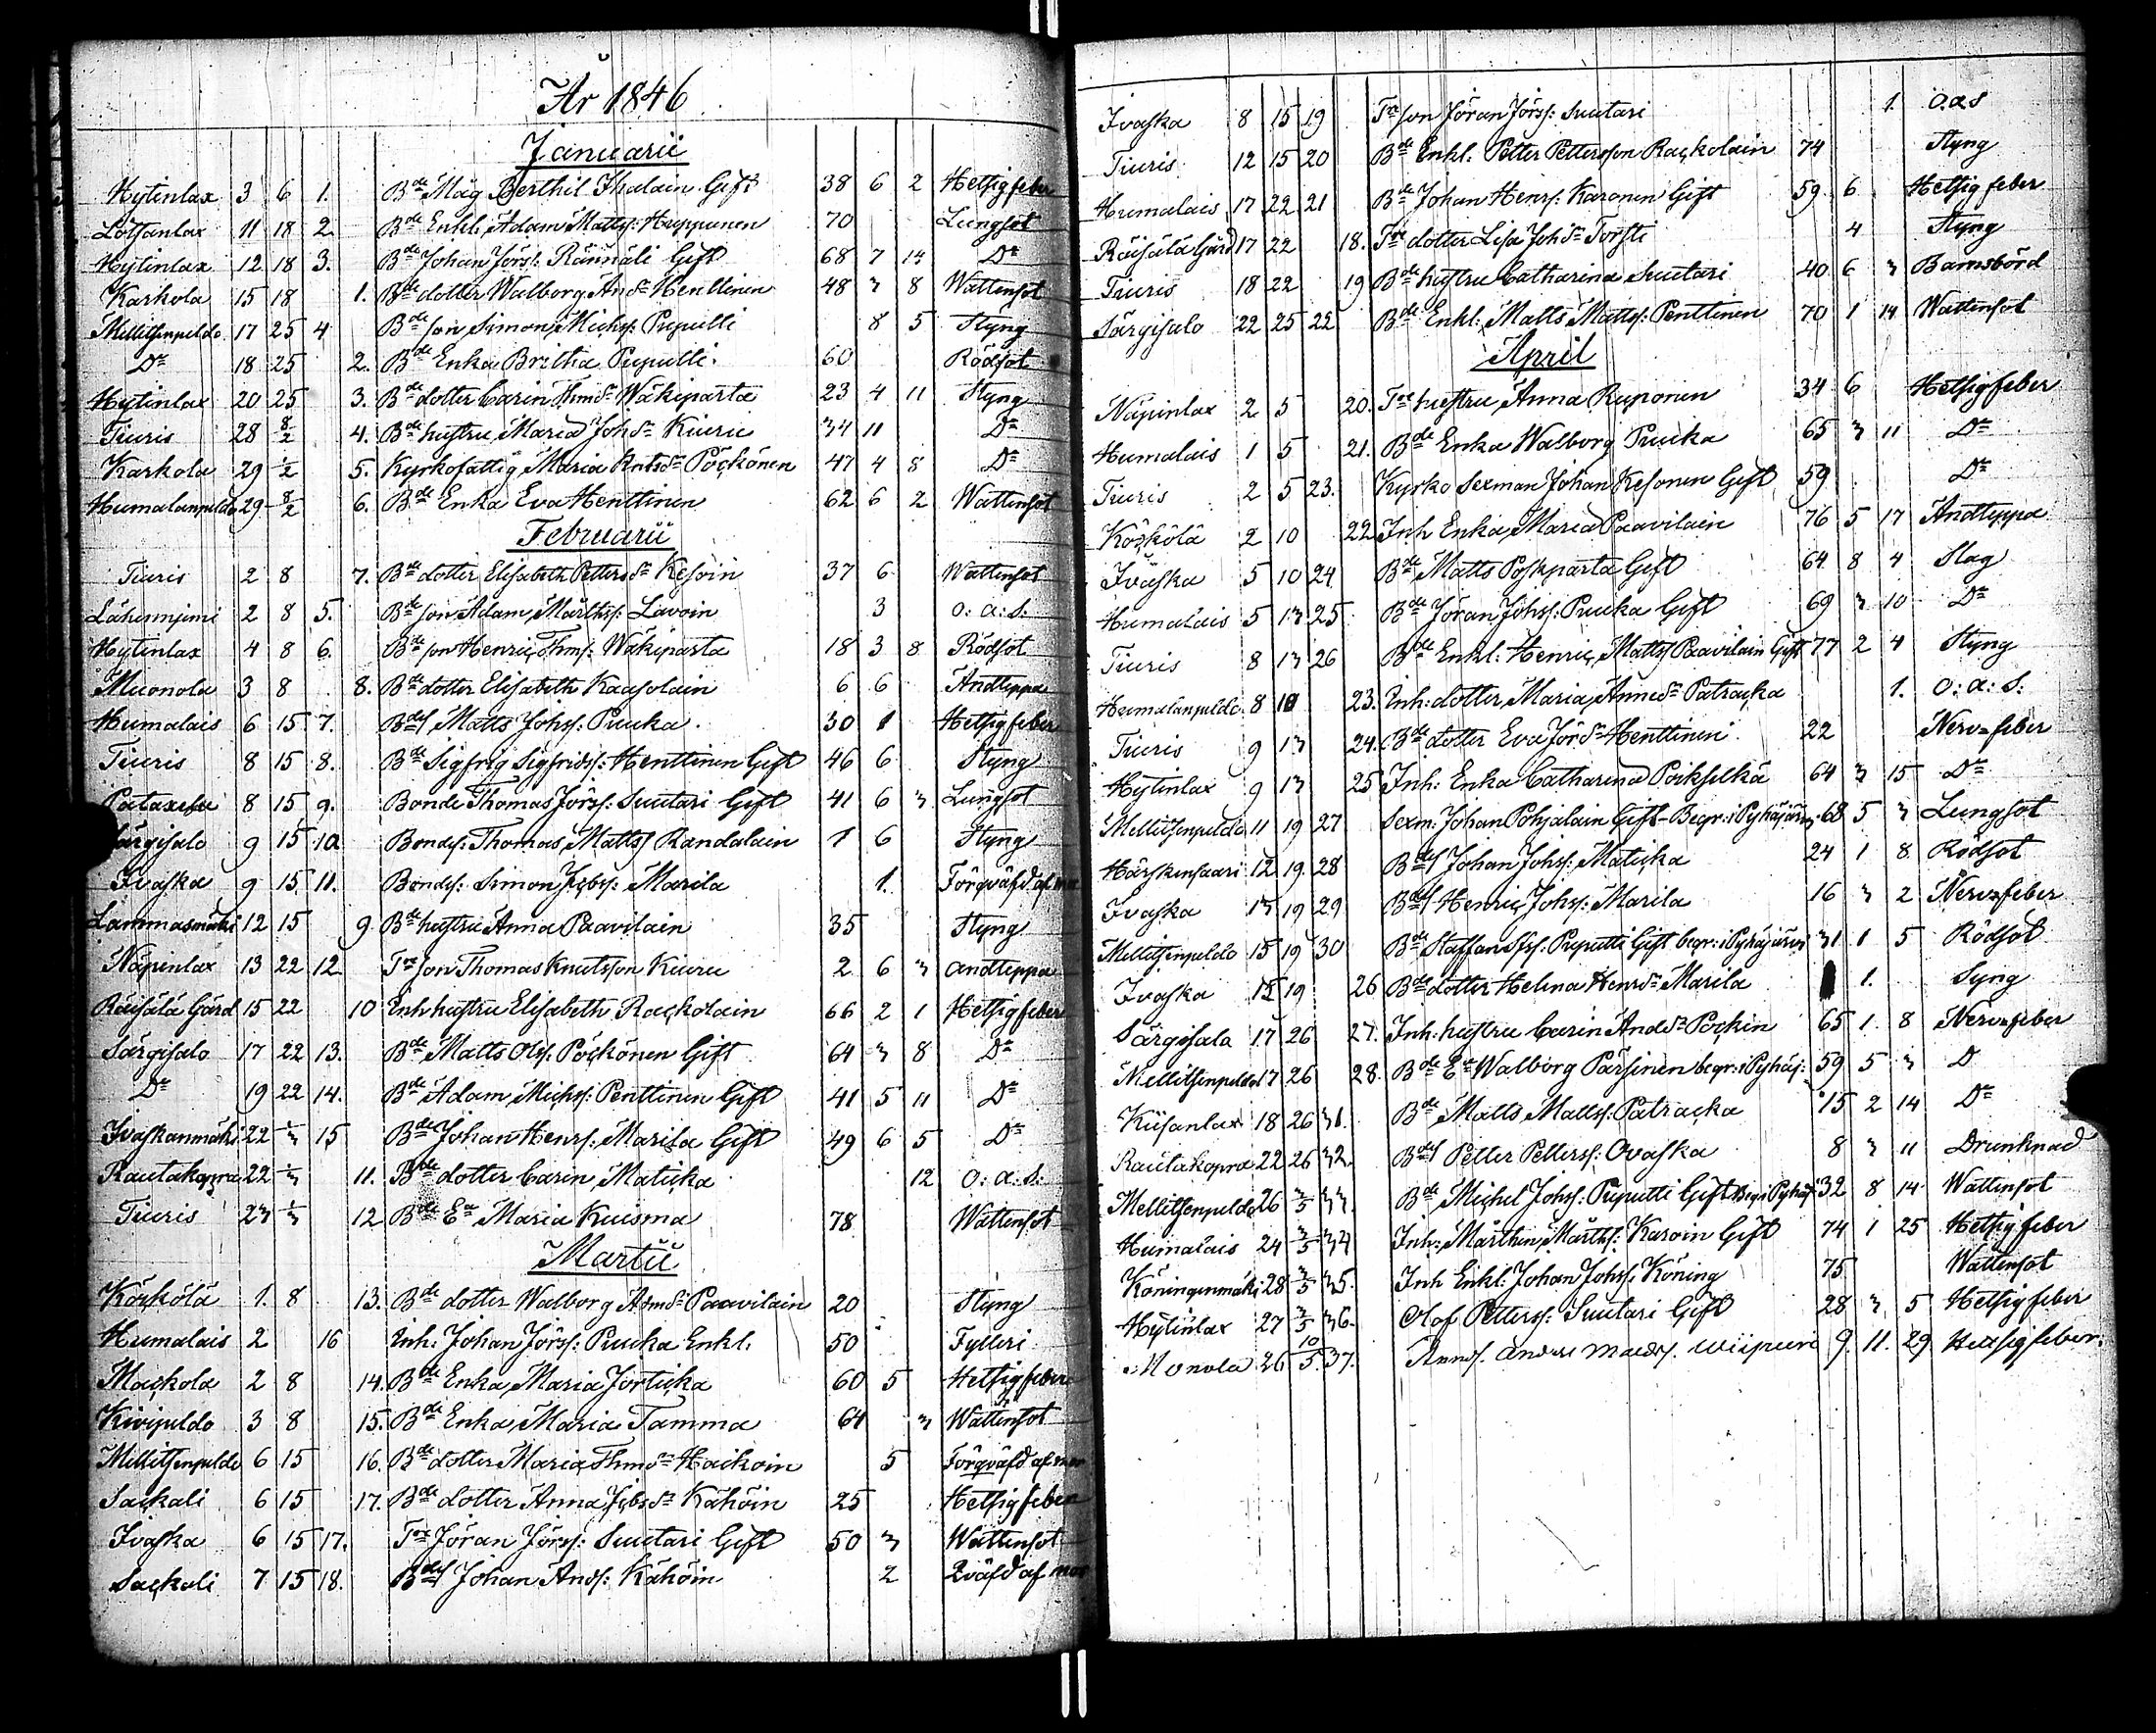 År 1846
Januarii
Hytinlax 3 6 1. Bde Måg Berthil Ihalain Gift 38 6 2 Hetsig feber
Lötsänlax 11 18 2 Bde Enkl. Adam Matts: Huppunen 70 Lungsot
Hytinlax 12 18 3. Bde Johan Jörss: Rännäli Gift 68 7 14 Do
Karkola 15 18 1. Bde dotter Walborg Andsdr Henttinen 48 3 8 Wattensot
Mellitsenpeldo 17 25 4 Bde son Simon Michs: Puputti 8 5 Styng
Do 18 25 2. Bde Enka Britha Puputti. 60 Rödsot
Hytinlax 20 25 3. Bde dotter Carin Thmsdr Wäkiparta 23 4 11 Styng
Tiuris 28 8/2 4. Bde hustru Maria Johsdr Kiuru 34 11 Do
Karkola 29 1/2 5. Kyrkofattig Maria Kntsdr Pöckönen 47 4 8 Do
Humalanpeldo 29 8/2 6. Bde Enka Eva Henttinen 62 6 2 Wattensot
Februarii
Tiuris 2 8 7. Bde dotter Elisabeth Pettersdr Kesoin 37 6 Wattensot
Lähenniemi 2 8 5. Bde son Adam Märthss: Lavoin 3 o: a: s:
Hytinlax 4 8 6. Bde son Henric Thms: Wäkiparta 18 3 8 Rödsot
Muonola 3 8 8. Bde dotter Elisabeth Kaasolain 6 6 Andteppa
Humalais 6 15 7. Bdes Matts Johss: Puuka 30 1 Hetsig feber
Tiuris 8 15 8. Bde Sigfrig Sigfridss: Henttinen Gift 46 6 Styng
8 15 9. Bonde Thomas Jörss: Suutari Gift 41 6 3 Lungsot
Särgisalo 9 15 10 Bondes: Thomas Matts Randalain 1 6 Styng
Ivaska 9 15 11. Bondes: Simon Jcbss: Marila 1. Förqväfd af
Lammasmäki 12 15 9 Bde hustru Anna Paavilain 35 Styng
Näpinlax 13 22 12 Tre son Thomas Knutsson Kiuru 2 6 3 andteppa
Räisälä Gård 15 22 10 Inh hustru Elisabeth Rackolain 66 2 1 Hetsig feber
Särgisalo 17 22 13. Bde Matts Ols: Pöckönen Gift 64 3 8 Do
Do 19 22 14. Bde Adam Michss: Penttinen Gift 41 5 11 Do
Ivaskanmäki 22 1/3 15 Bde Johan Henrs: Marila Gift 49 6 5 Do
Rautakopra 22 1/3 11. Bde dotter Carin Maticka 12 o: a: s:
Tiuris 23 1/3 12 Bde Ea Maria Kuisma 78 Wattensot
Martii
Köckölä 1. 8 13. Bde dotter Walborg Admsdr Paavilain 20 Styng
Humalais 2 16 Inh. Johan Jörss: Puuka Enkl. 50 Fylleri
Mackola 2 8 14. Bde Enka Maria Jorticka 60 5 Hetsig feber
Kivipeldo 3 8 15. Bde Enka Maria Tamma 64 3 Wattensot
Mellitsenpeldo 6 15 16. Bde dotter Maria Thmsdr Haikoin 5 Förqväfd af
Sackali 6 15 17. Bde dotter Anna Jcbsdr Kähöin 25 Hetsig feber
Ivaska 6 15 17. Tre Jöran Jörss: Suutari Gift 50 3 Wattensot
Sackali 7 15 18. Bdes Johan Ands: Kähöin 2 Qväfd af
Ivaska 8 15 19 Tre son Jöran Jörss: Suutari 1. o.a.s
Tiuris 12 15 20 Bde Enkl. Petter Pettersson Rackolain 74 Styng
Humalais 17 22 21 Bde Johan Henrs: Karonen Gift 59 6 Hetsig feber
Räisälä Gård 17 22 18. Tre dotter Lisa Johsdr Torsti 4 Styng
Tiuris 18 22 19 Bde hustru Catharina Suutari 40 6 3 Barnsbörd
Särgisalo 22 25 22 Bde Enkl. Matts Mattss: Penttinen 70 1 14 Wattensot
April
Näpinlax 2 5 20. Tre hustru Anna Ruponen 34 6 Hetsig feber
Humalais 1 5 21. Bde Enka Walborg Puuka 65 3 11 Do
Tiuris 2 5 23. Kyrko Sexman Johan Kesonen Gift 59 Do
Köckölä 2 10 22 Inh Enka Maria Paavilain 76 5 17 Andteppa
Ivaska 5 10 24 Bde Matts Poskparta Gift 64 8 4 Slag
Humalais 5 13 25 Bde Jöran Johss: Puuka Gift 69 3 10 Do
Tiuris 8 13 26 Bde Enkl: Henric Matts Paavilain Gift 77 2 4 Styng
Humalanpeldo 8 10 23. Inh: dotter Maria Annesdr Patracka 1. o: a: s:
Tiuris 9 13 24. Bde dotter Eva Jörsdr Henttinen 22 Nerv=feber
Hytinlax 9 13 25 Inh: Enka Catharina Poikselkä 64 3 15 Do
Mellitsenpeldo 11 19 27 Sexm: Johan Pohjalain Gift- Begr: i Pyhäjärvi 68 5 3 Lungsot
Härskensaari 12 19 28 Bdes Johan Johss: Maticka 24 1 8 Rödsot
Ivaska 13 19 29 Bdes Henric Johss: Marila 16 3 2 Nerv=feber
Mellitsenpeldo 15 19 30 Bde Staffan Puputti Gift begr: i Pyhäjärvi 31 1 5 Rödsot
Ivaska 15 19 26 Bde dotter Helena Henrsdr Marila 1. Syng
Särgisala 17 26 27. Inh: hustru Carin Andsdr Pockin 65 1 8 Nerv=feber
Mellitsenpeldo 17 26 28. Bde Ea Walborg Pärsinen begr: i Pyhäj: 59 5 3 D
Kiisanlax 18 26 31. Bde Matts Mattss: Patracka 15 2 14 Do
Rautakopra 22 26 32 Bdes Petter Petterss: Ovaska 8 3 11 Drunknad
Mellitsenpeldo 26 3/5 33. Bde Michel Johss: Puputti Gift Begr: i Pyhäj: 32 8 14 Wattensot
Humalais 24 3/5 34 Inh: Märthen Märths: Karoin Gift 74 1 25 Hetsig feber
Köningenmäki 28 3/5 35. Inh Enkl: Johan Johss: Köning 75 Wattensot
Hytinlax 27 3/5 36. Olof Petterss: Suutari Gift 28 3 5 Hetsig feber
Monola 26 10/5 37. Anders Wiipuri 9. 11. 29 Hetsig feber.